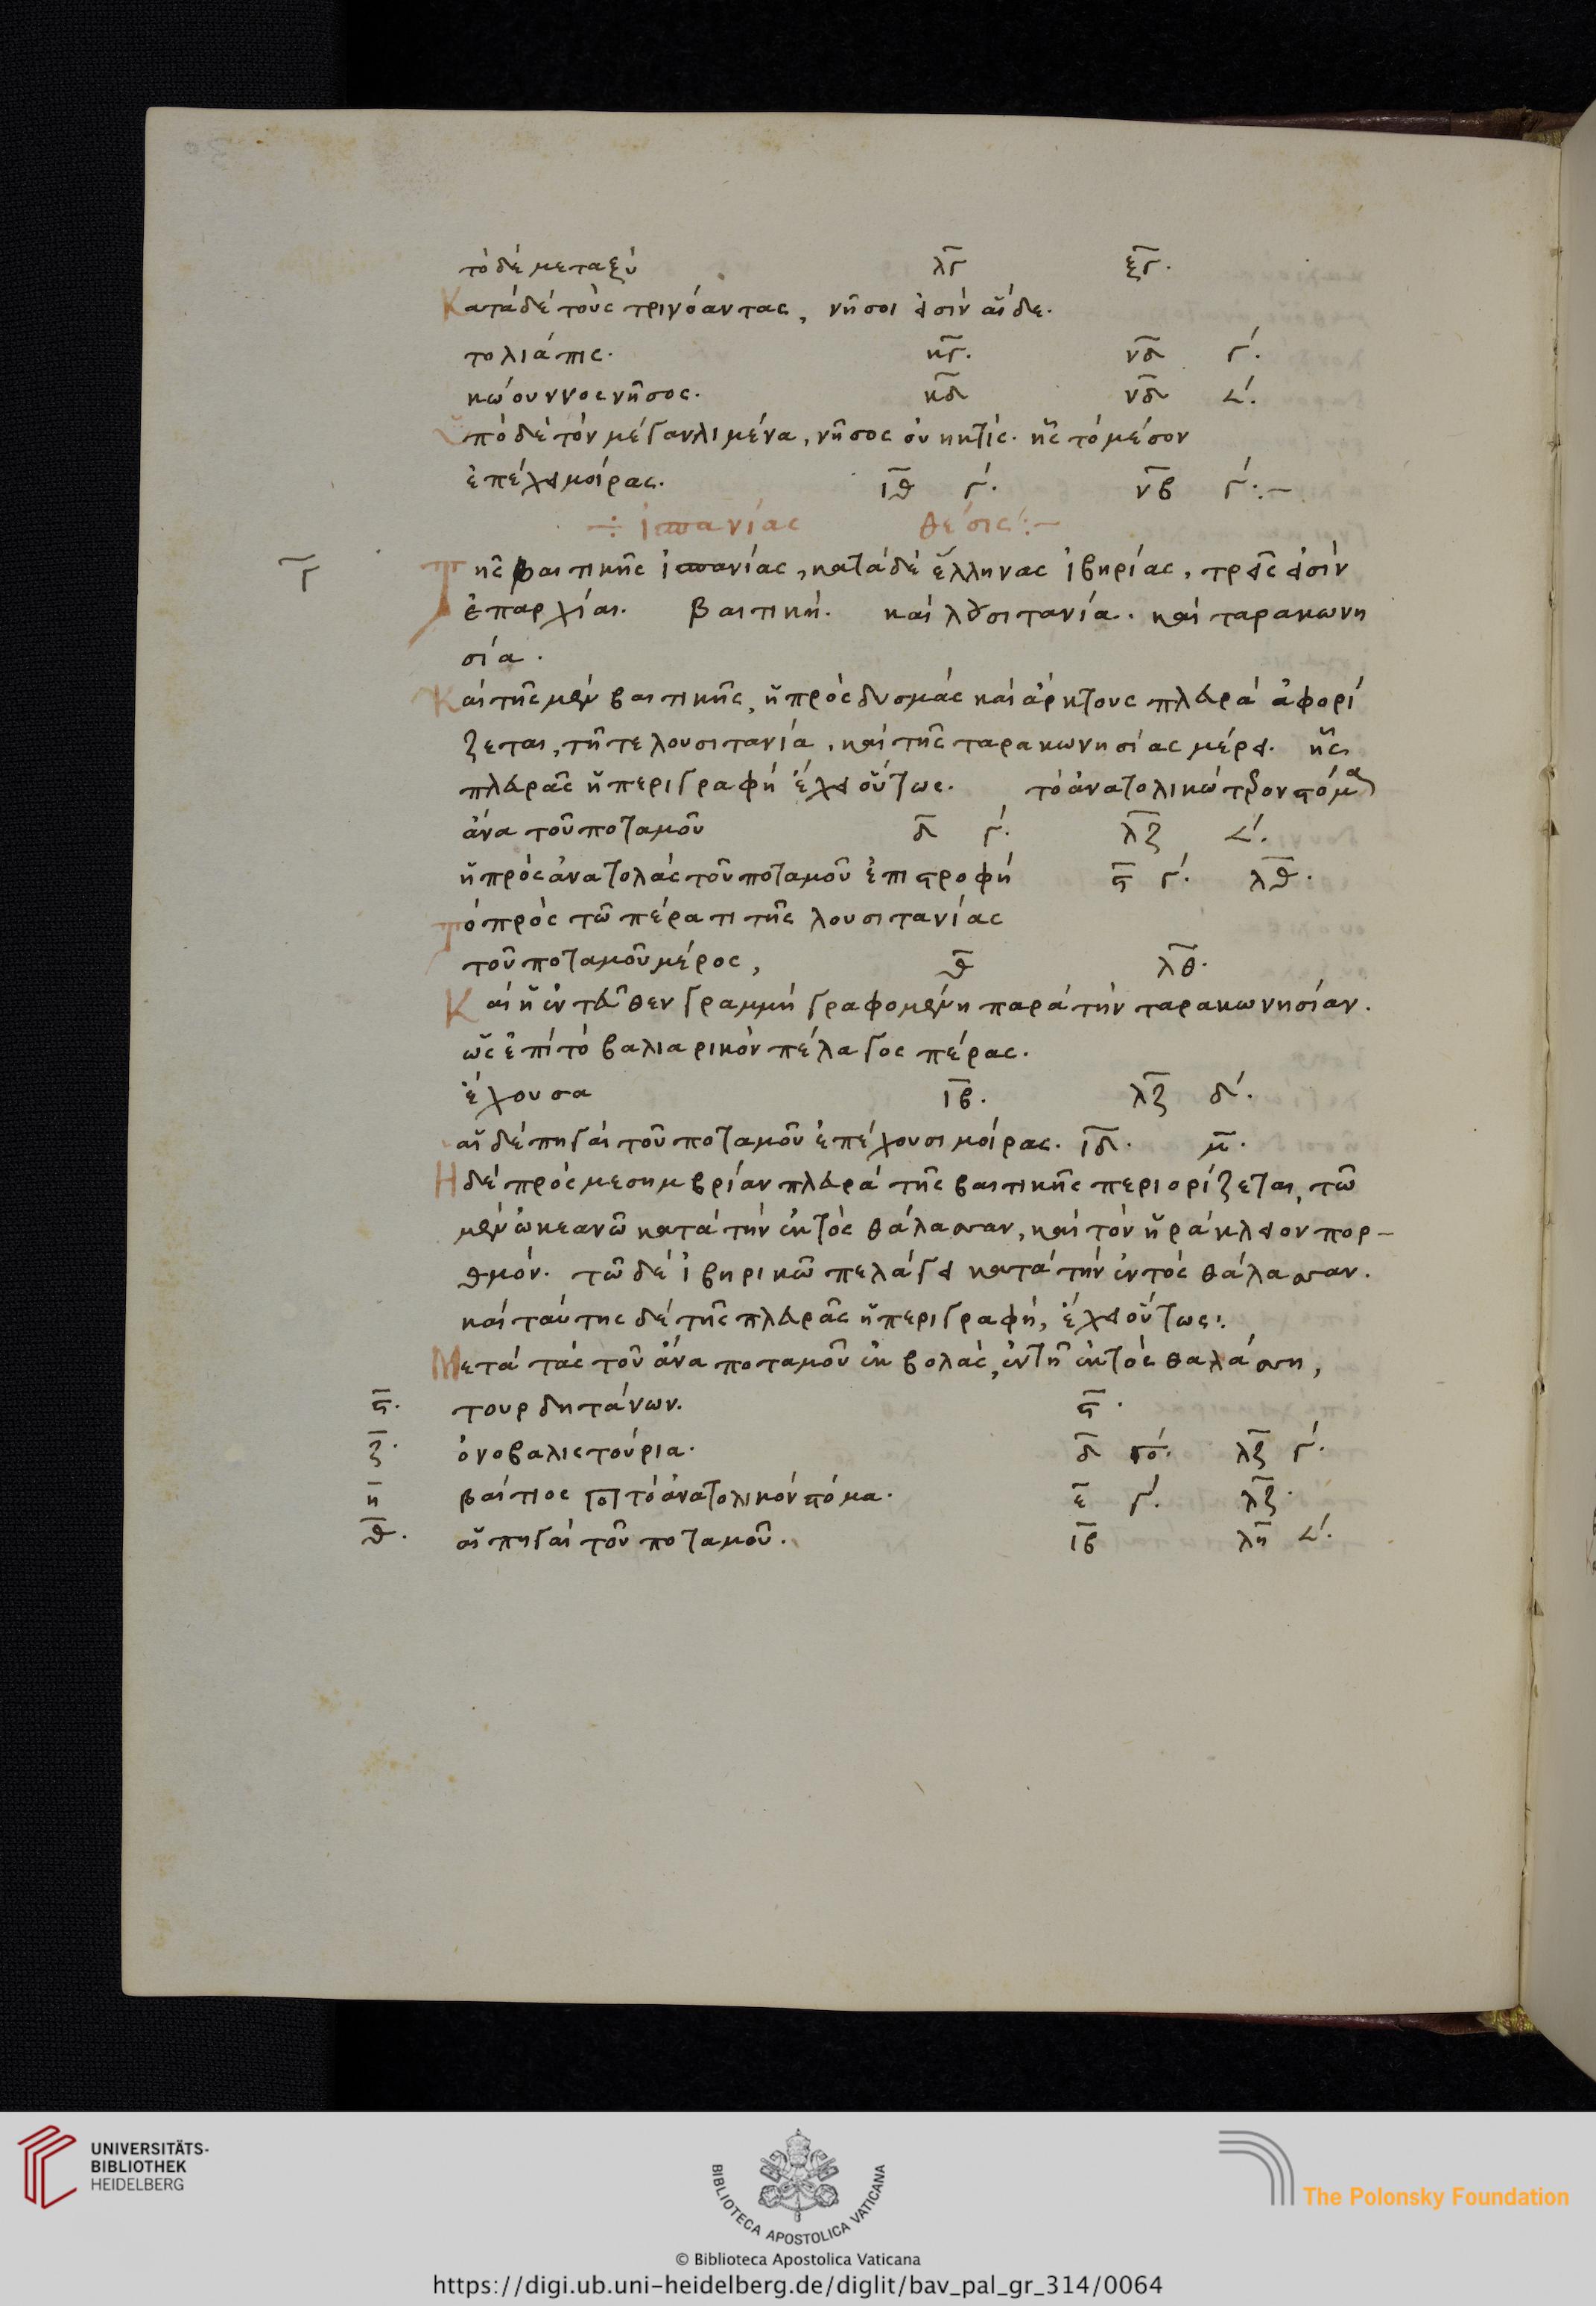 τὸ δὲ μεταξὺ λγ ξγ.
Κατὰ δὲ τοὺς τρινόαντας, νῆσοι εἰσὶν αἵδε.
τολιάπις. κγ. νδ γ΄.
κώουννος νῆσος. κδ νδ ∠΄.
Ὑπὸ δὲ τὸν μέγαν λιμένα, νῆσος οὐηκτὶς. ἧς τὸ μέσον
ἐπέχει μοίρας. ιθ γ΄. νβ γ΄:–
÷ ἱσπανίας θέσις:–
γ Τῆς βαιτικῆς ἱσπανίας, κατὰ δὲ ἕλληνας ἰβηρίας, τρεῖς εἰσὶν
ἐπαρχίαι. βαιτικὴ. καὶ λουσιτανία. καὶ ταρακωνη
σία.
Καὶ τῆς μὲν βαιτικῆς, ἡ πρὸς δυσμὰς καὶ ἄρκτους πλευρὰ ἀφορί
ζεται, τῆ τε λουσιτανία, καὶ τῆς ταρακωνησίας μέρει. ἧς
πλευρᾶς ἡ περιγραφὴ ἔχει οὕτως. τὸ ἀνατολικώτερον στόμα
ἄνα τοῦ ποταμοῦ δ γ΄. λζ ∠΄.
ἡ πρὸς ἀνατολὰς τοῦ ποταμοῦ ἐπιστροφὴ ϛ γ΄. λθ.
Τὸ πρὸς τῶ πέρατι τῆς λουσιτανίας
τοῦ ποταμοῦ μέρος, θ λθ.
Καὶ ἡ ἐντεῦθεν γραμμὴ γραφομένη παρὰ τὴν ταρακωνησίαν.
ὡς ἐπὶ τὸ βαλιαρικὸν πέλαγος πέρας.
ἔχουσα ιβ. λζ δ΄.
αἱ δὲ πηγαὶ τοῦ ποταμοῦ ἐπέχουσι μοίρας. ιδ. μ.
Ἡ δὲ πρὸς μεσημβρίαν πλευρὰ τῆς βαιτικῆς περιορίζεται, τῶ
μὲν ὠκεανῶ κατὰ τὴν ἐκτὸς θάλασσαν, καὶ τὸν ἡράκλειον πορ–
θμόν. τῶ δὲ ἰβηρικῶ πελάγει κατὰ τὴν ἐντὸς θάλασσαν.
καὶ ταύτης δὲ τῆς πλευρᾶς ἡ περιγραφὴ, ἔχει οὕτως:
Μετὰ τὰς τοῦ ἄνα ποταμοῦ ἐκβολὰς, ἐν τῆ ἐκτὸς θαλάσση,
ϛ. τουρδητάνων. ϛ.
ζ. ὀνοβαλιςτούρια. δ γο΄. λζ γ΄.
η βαίτιος πο τὸ ἀνατολικὸν στόμα. ε γ΄. λζ.
θ. αἱ πηγαὶ τοῦ ποταμοῦ. ιβ λη ∠΄.
UNIVERSITÄTS-
BIBLIOTHEK
HEIDELBERG
BIBLIOTECA APOSTOLICA VATICANA
© Biblioteca Apostolica Vaticana
The Polonsky Foundation
https://digi.ub.uni-heidelberg.de/diglit/bav_pal_gr_314/0064